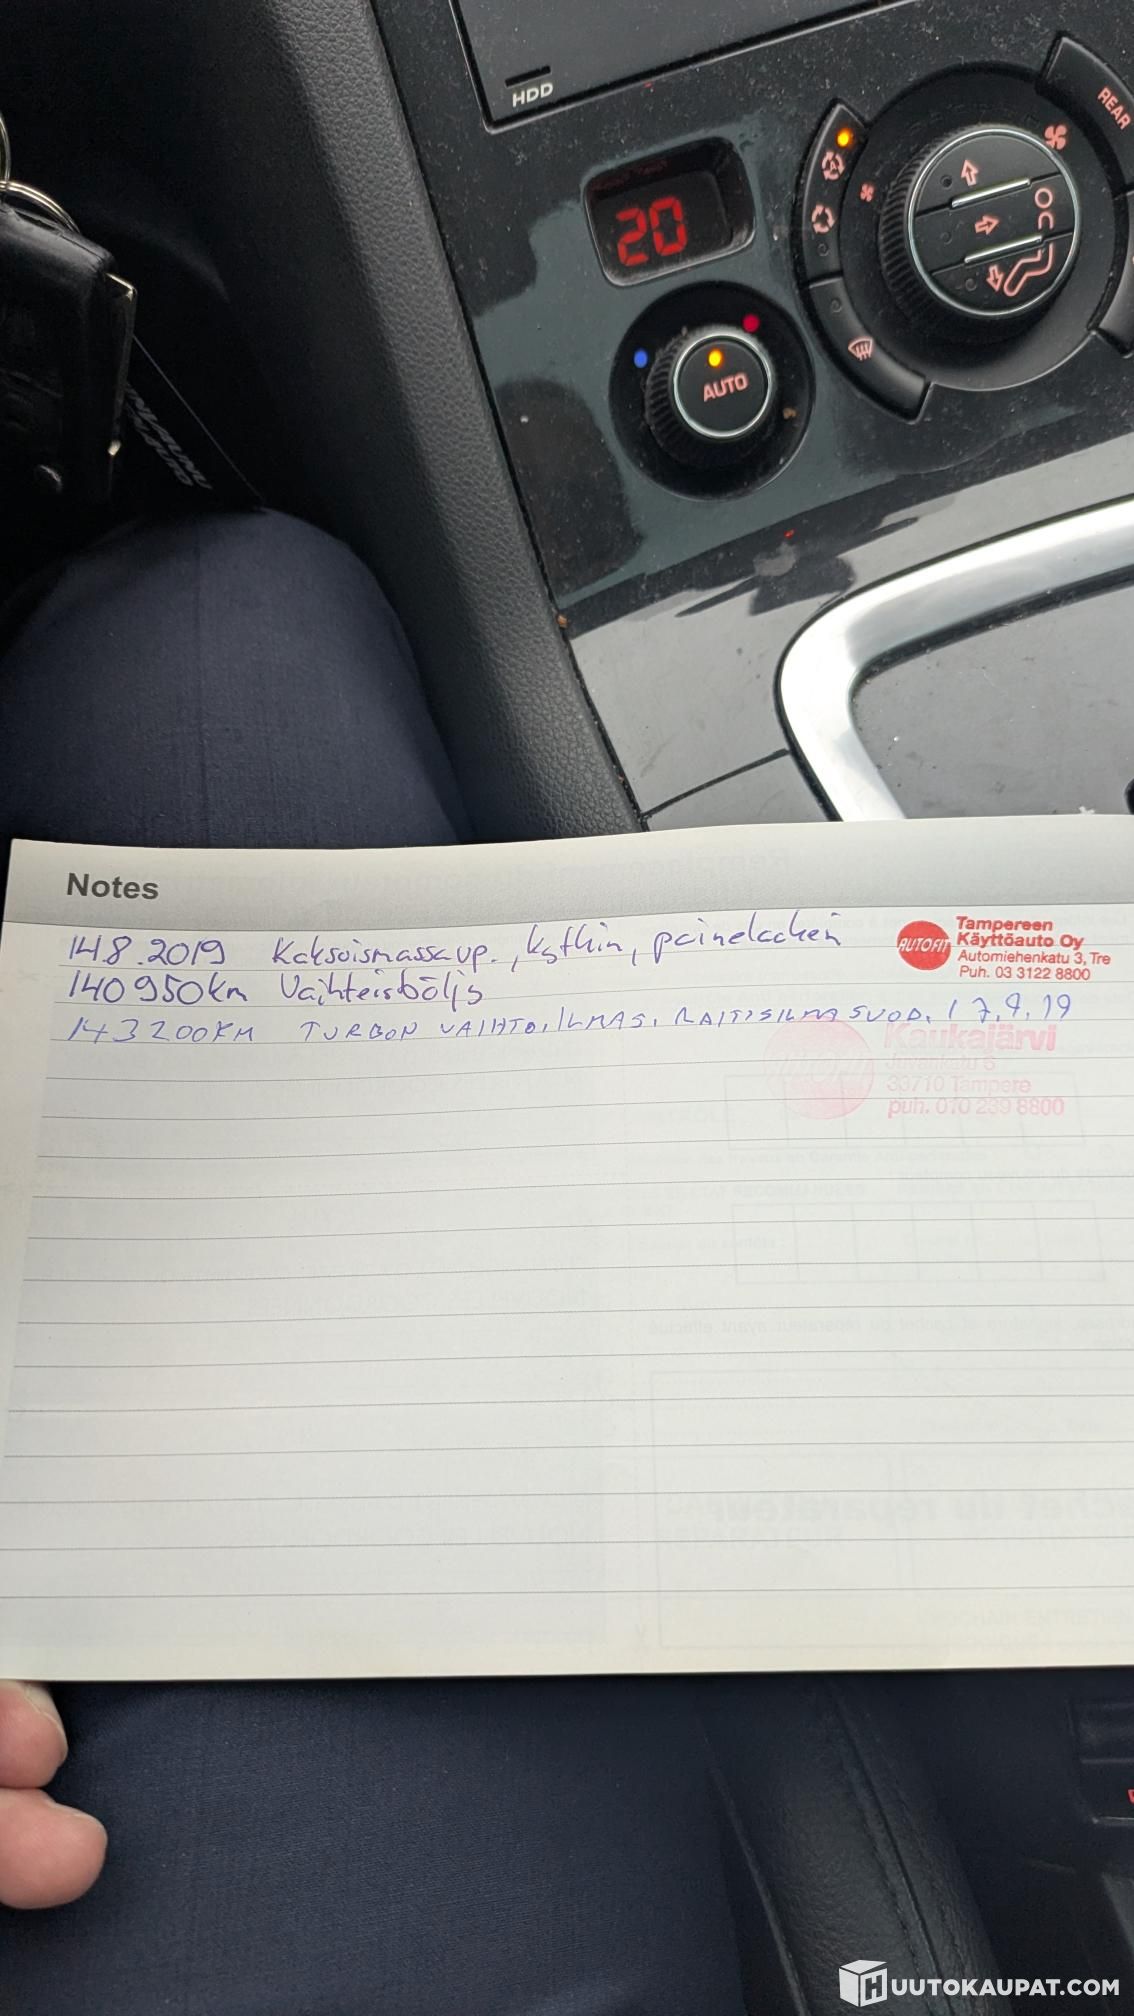 HDD
REAR
20
AUTO
Notes
14.8.2019 Kaksoismassavp., kytkin, painelaakeri
140950km Vaihteistoöljs
143200KM TURBON VAIHTO, ILMAS, RAITISILMASUOD. 17.9.19
AUTOFIT
Tampereen
Käyttöauto Oy
Automiehenkatu 3, Tre
Puh. 03 3122 8800
Kaukajärvi
Juvankatu 6
33710 Tampere
puh. 010 239 8800
HUUTOKAUPAT.COM